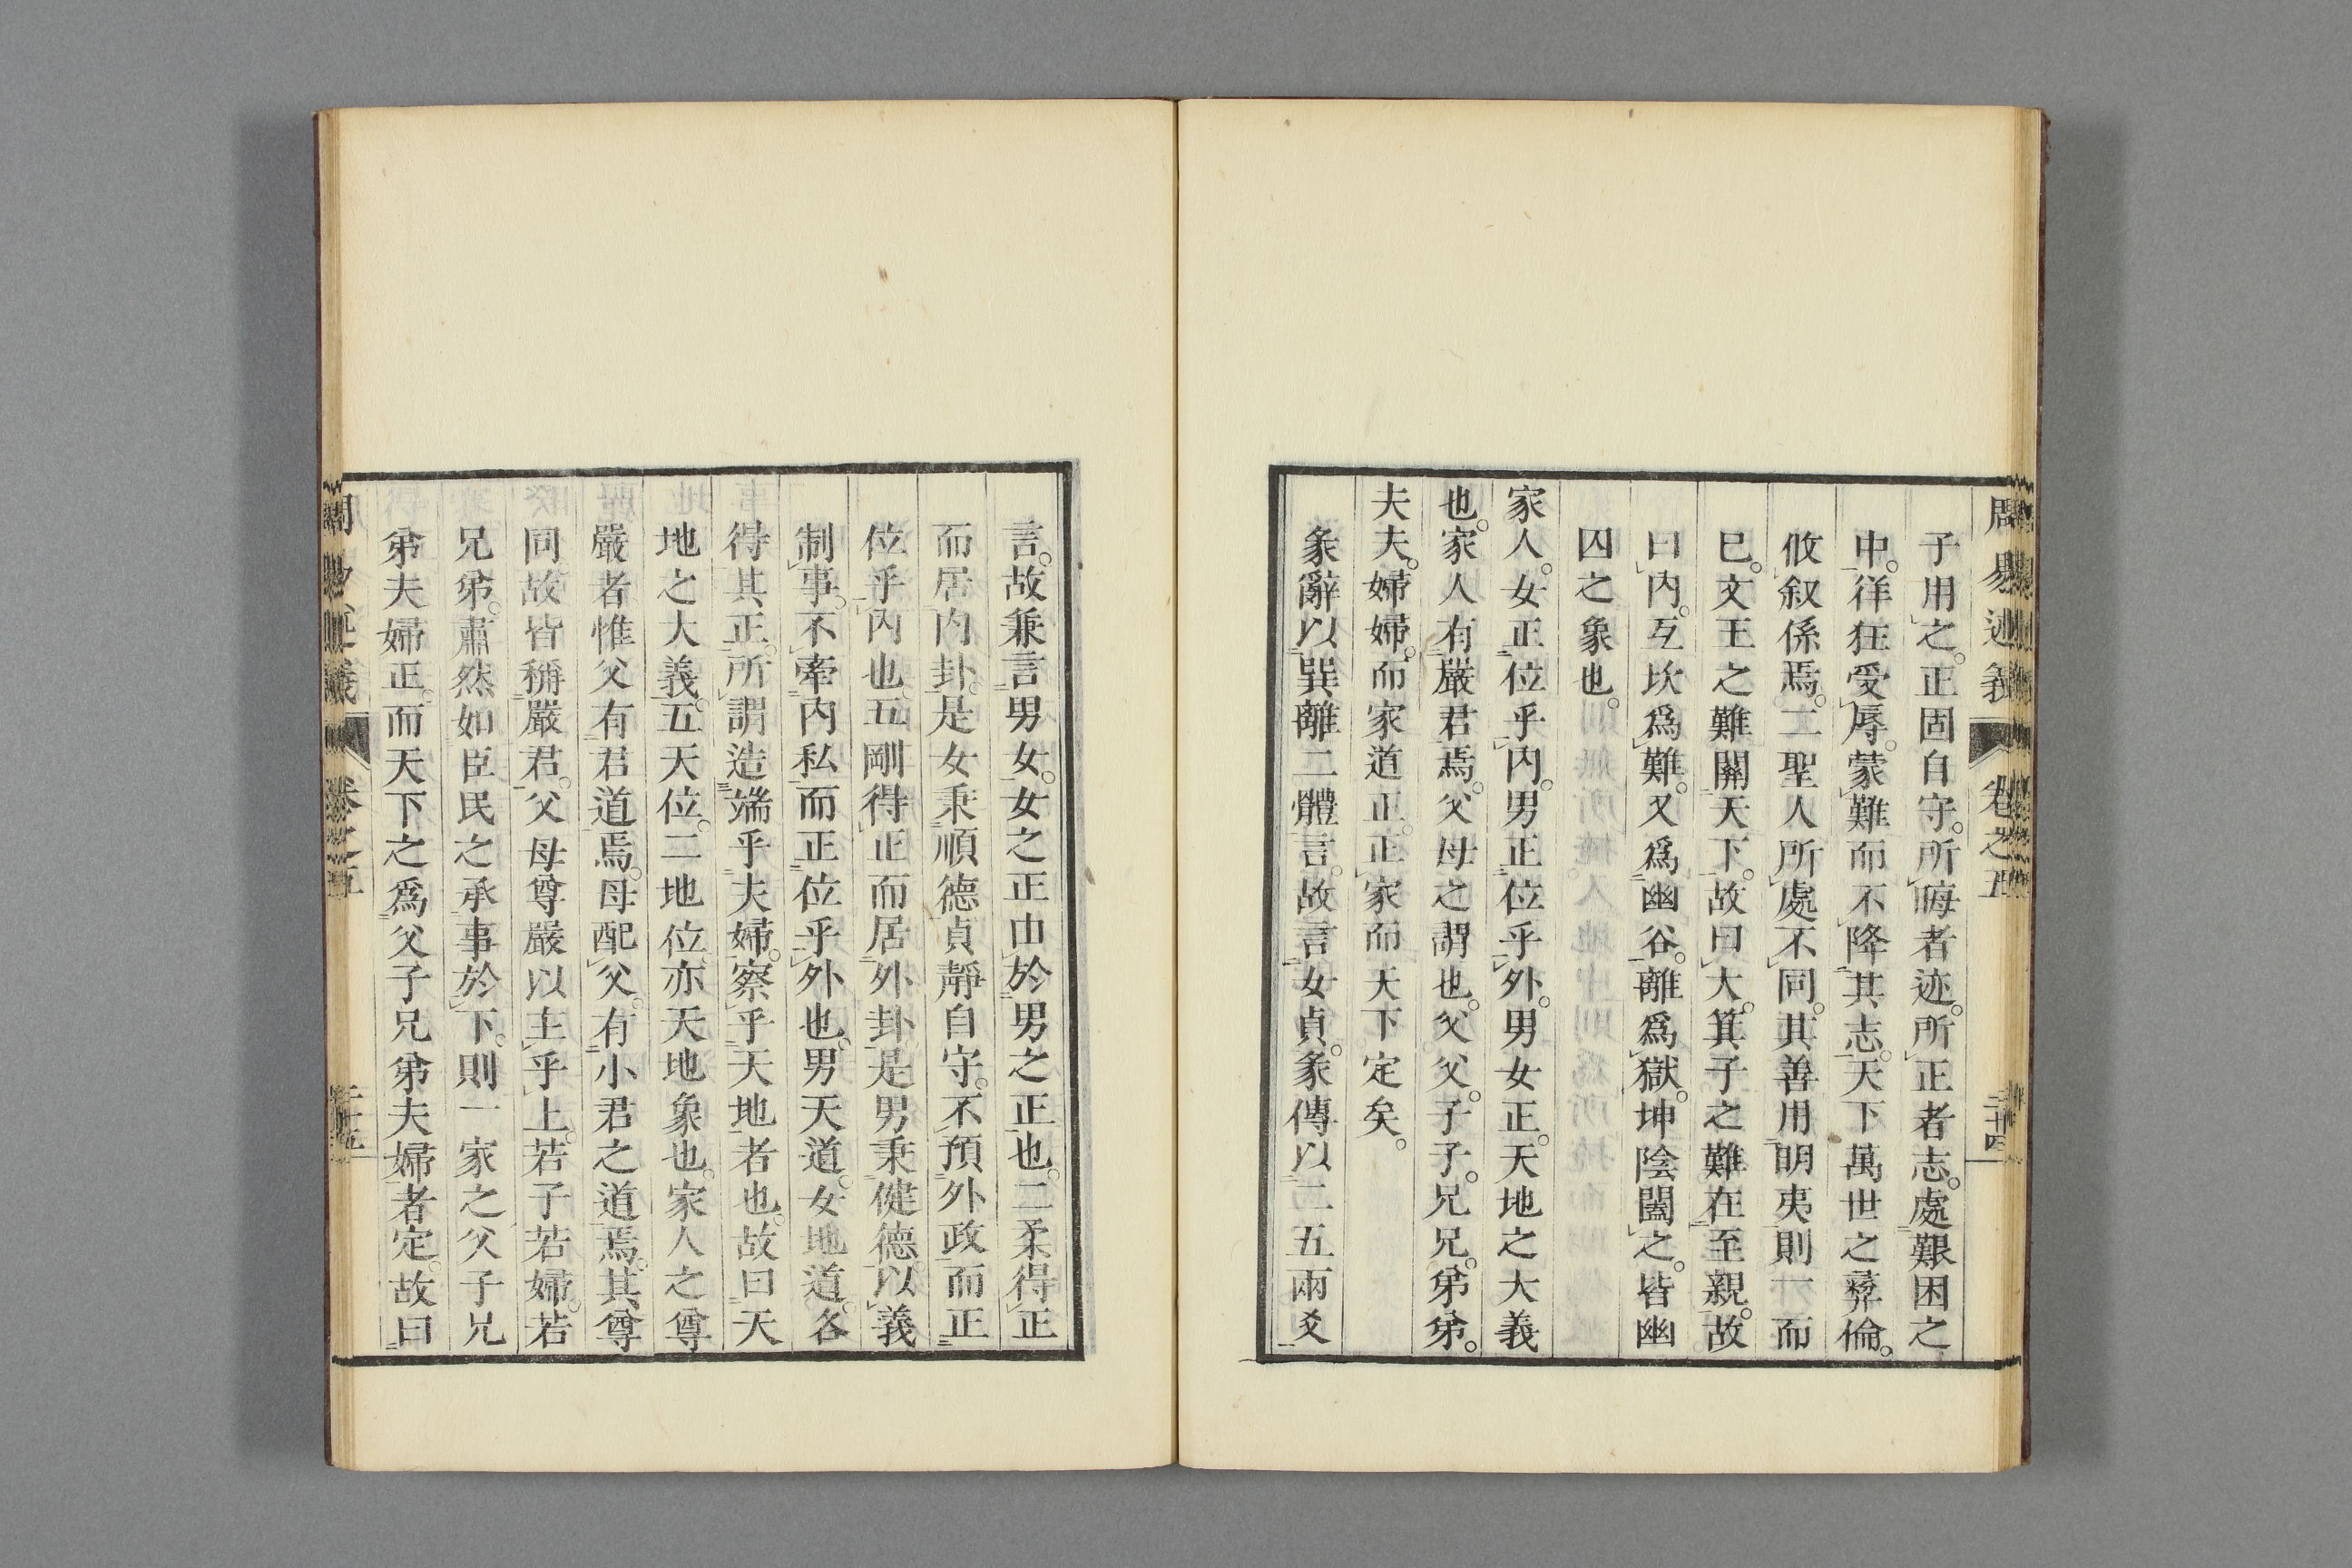 周易述義 卷之五 二十四
子用之。正固自守。所晦者迹。所正者志。處艱困之
中。徉狂受辱。蒙難而不降其志。天下萬世之彝倫。
攸叙係焉。二聖人所處不同。其善用明夷則一而
已。文王之難關天下。故曰大。箕子之難在至親。故
曰內。互坎爲難。又爲幽谷。離爲獄。坤陰闔之。皆幽
囚之象也。
家人。女正位乎內。男正位乎外。男女正。天地之大義
也。家人有嚴君焉。父母之謂也。父父。子子。兄兄。弟弟。
夫夫。婦婦。而家道正。正家而天下定矣。
彖辭以巽離二體言。故言女貞。彖傳以二五兩爻
言。故兼言男女。女之正由於男之正也。二柔得正
而居內卦。是女秉順德貞靜自守。不預外政而正
位乎內也。五剛得正而居外卦。是男秉健德。以義
制事。不牽內私而正位乎外也。男天道。女地道。各
得其正。所謂造端乎夫婦。察乎天地者也。故曰天
地之大義。五天位。二地位。亦天地象也。家人之尊
嚴者惟父有君道焉。母配父。有小君之道焉。其尊
同故皆稱嚴君。父母尊嚴以主乎上。若子若婦。若
兄弟。肅然如臣民之承事於下。則一家之父子兄
弟夫婦正。而天下之爲父子兄弟夫婦者定。故曰